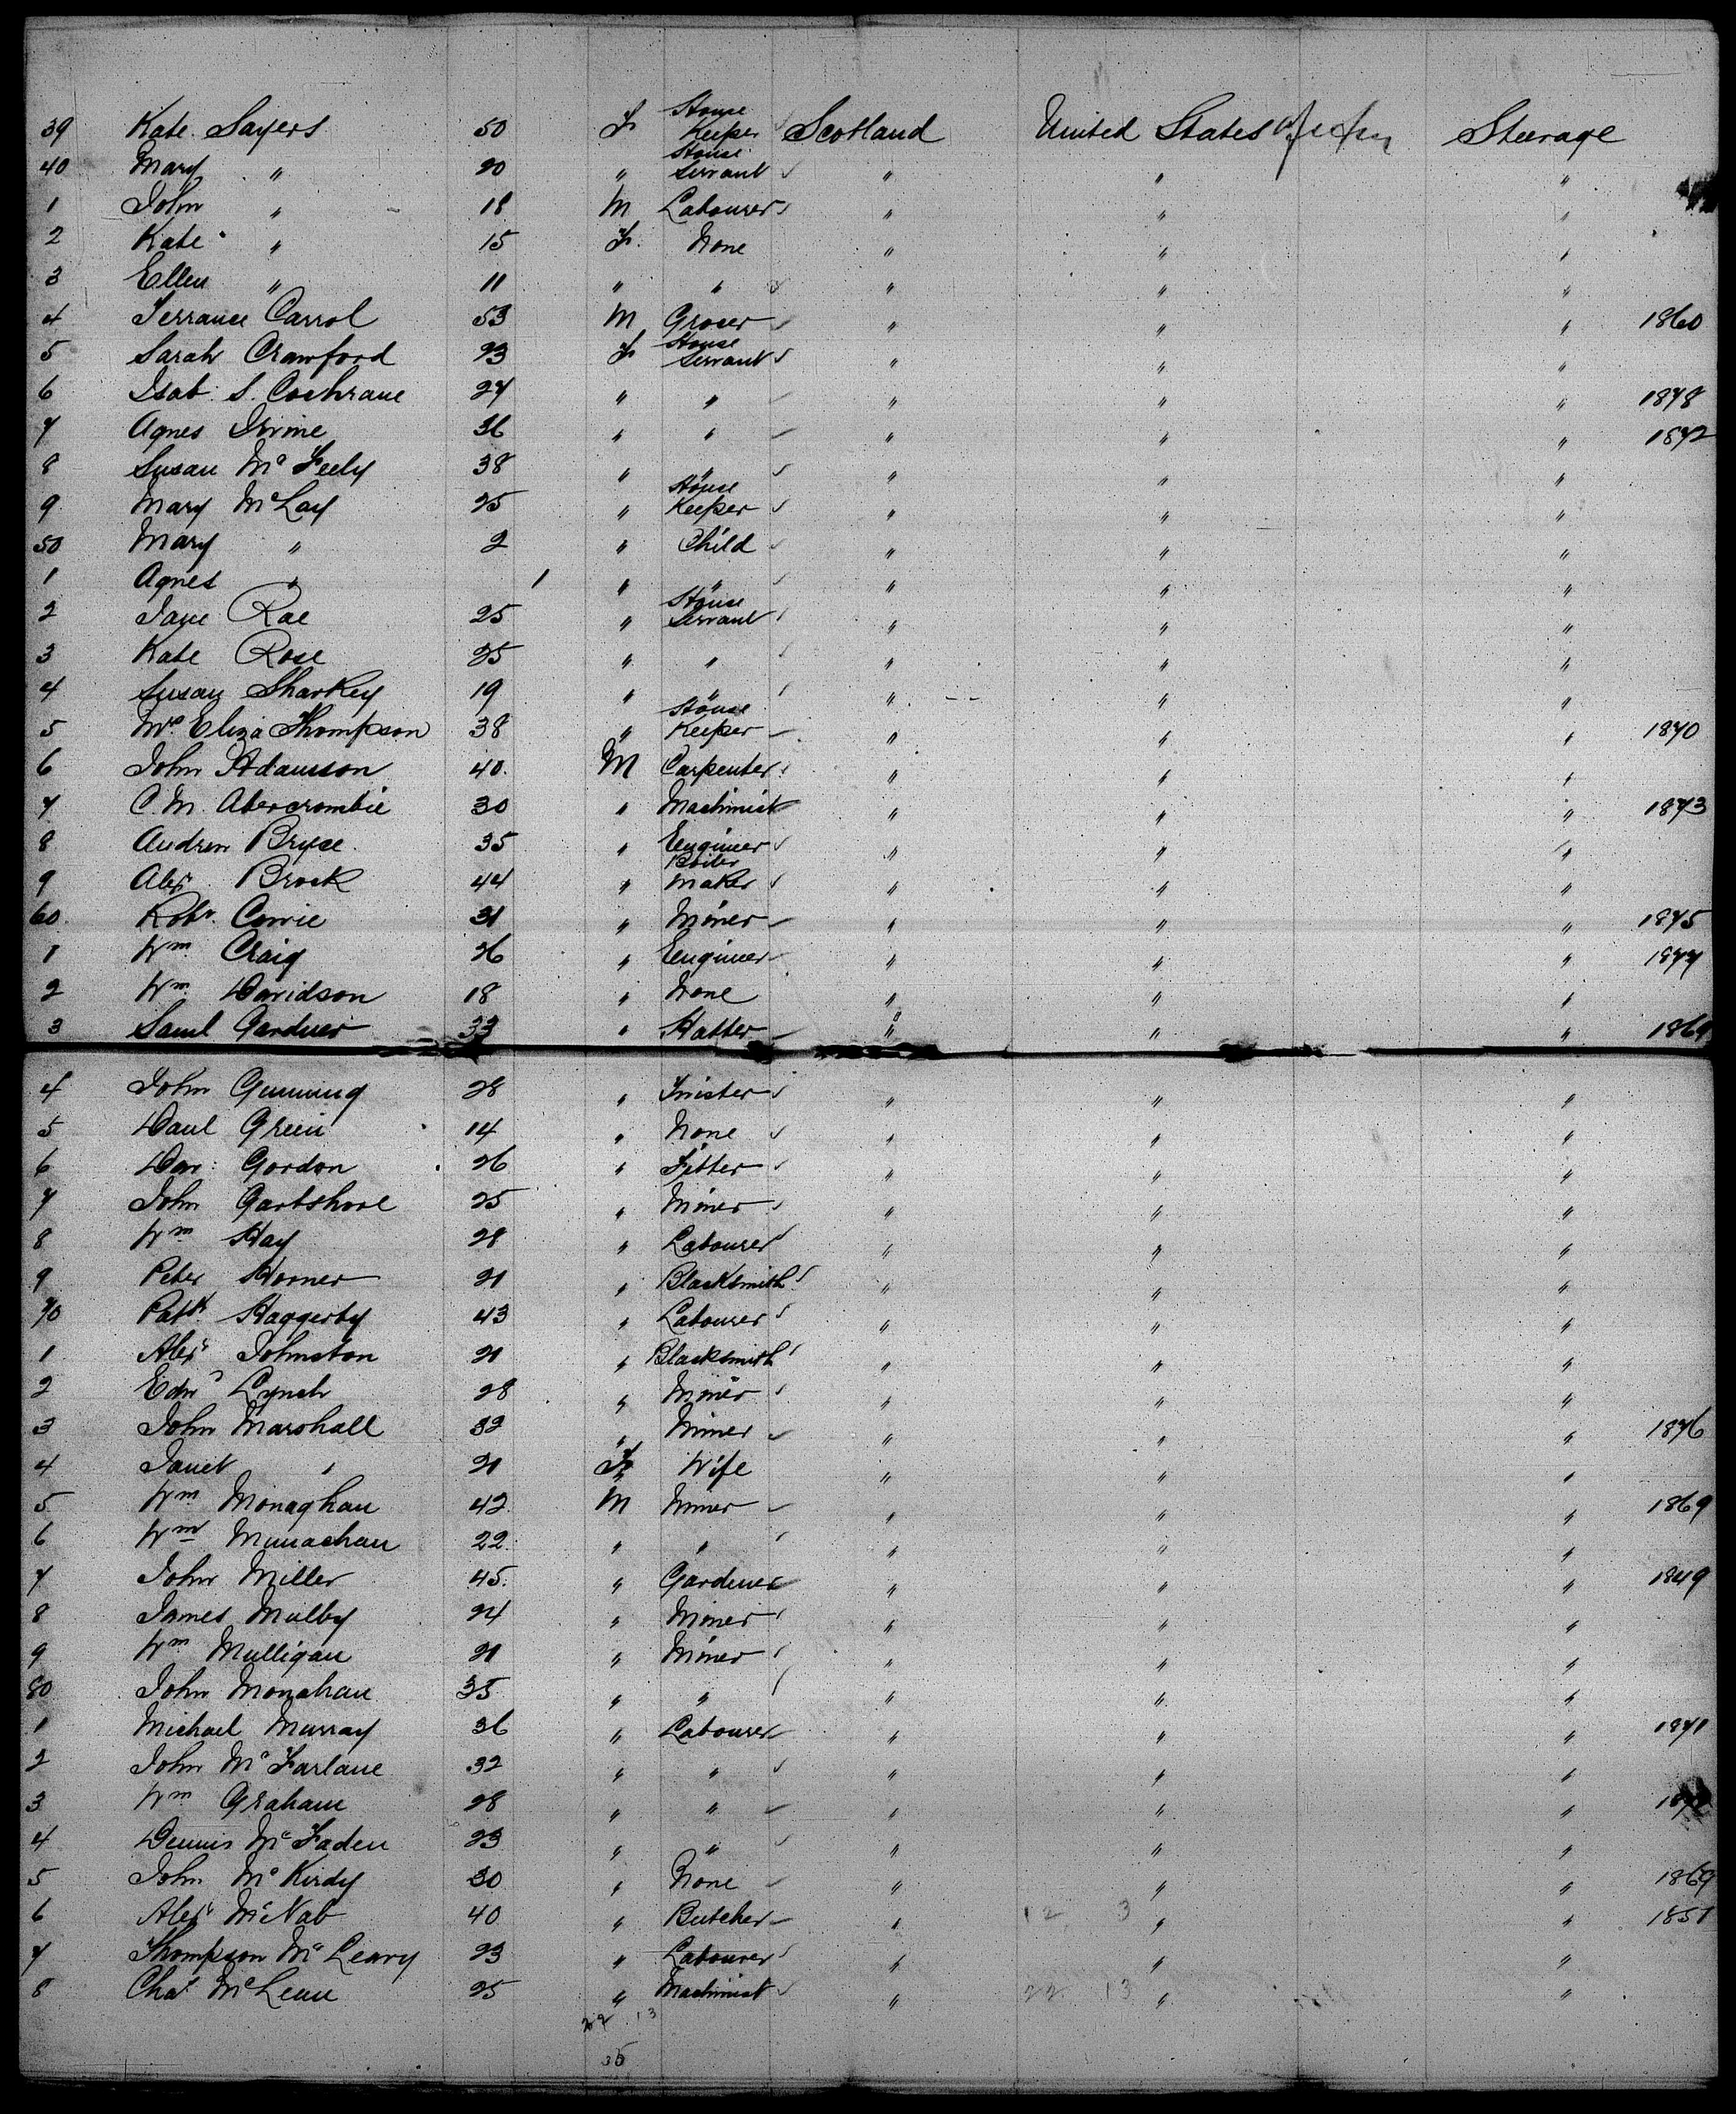 39 Kate Sayers 50 F House Keeper Scotland United States of Steerage
40 Mary " 20 " House Servant " " "
1 John " 18 M Labourer " " "
2 Kate " 15 F. None " " "
3 Ellen " 11 " " " " "
4 Terrance Carrol 53 M Grocer " " " 1860
5 Sarah Crawford 23 F House Servant " " "
6 Isab: S. Cochrane 27 " " " " " 1878
7 Agnes Irvine 36 " " " " " 1872
8 Susan Mc Feely 38 " " " " "
9 Mary McLay 25 " House Keeper " " "
50 Mary " 2 " Child " " "
1 Agnes " 1 " " " " "
2 Jane Rae 25 " House Servant " " "
3 Kate Rose 25 " " " " "
4 Susan Sharkey 19 " " " " "
5 Mrs. Eliza Thompson 38 " House Keeper " " " 1870
6 John Adamson 40. M Carpenter " " "
7 C. M. Abercrombie 30 " Machinist " " " 1873
8 Andrew Bryce. 35 " Engineer " " "
9 Alexr Brock 44 " Boiler Maker " " "
60. Robt. Corrie 31 " Miner " " " 1875
1 Wm Craig 26 " Engineer " " " 1877
2 Wm Davidson 18 " None " " "
3 Saml Gardner 33 " Hatter " " " 1869
4 John Gunning 28 " " " "
5 Danl Green 14 " None " " "
6 Dav: Gordon 26 " Fitter " " "
7 John Gartshore 25 " Miner " " "
8 Wm Hay 28 " Labourer " " "
9 Peter Horner 21 " Blacksmith " " "
70 Patk. Haggerty 43 " Labourer " " "
1 Alexr Johnston 21 " Blacksmith " " "
2 Edwd Lynch 28 " Miner " " "
3 John Marshall 32 " Miner " " " 1876
4 Janet " 21 F Wife " " "
5 Wm Monaghan 42 M Miner " " " 1869
6 Wm Munachan 22 " " " " "
7 John Miller 45. " Gardener " " " 1849
8 James Mulby 24 " Miner " " "
9 Wm Mulligan 21 " Miner " " "
80 John Monahan 35 " " " " "
1 Michael Murray 36 " Labourer " " " 1871
2 John Mc Farlane 32 " " " " "
3 Wm Graham 28 " " " " "
4 Dennis Mc Faden 23 " " " " "
5 John Mc Kirdy 30 " None " " " 1869
6 Alexr McNab 40 " Butcher " 12 3 " " 1851
7 Thompson Mc Leary 23 " Labourer " " "
8 Chas McLean 25 " Machinist " 22 13 " "
22 13
35